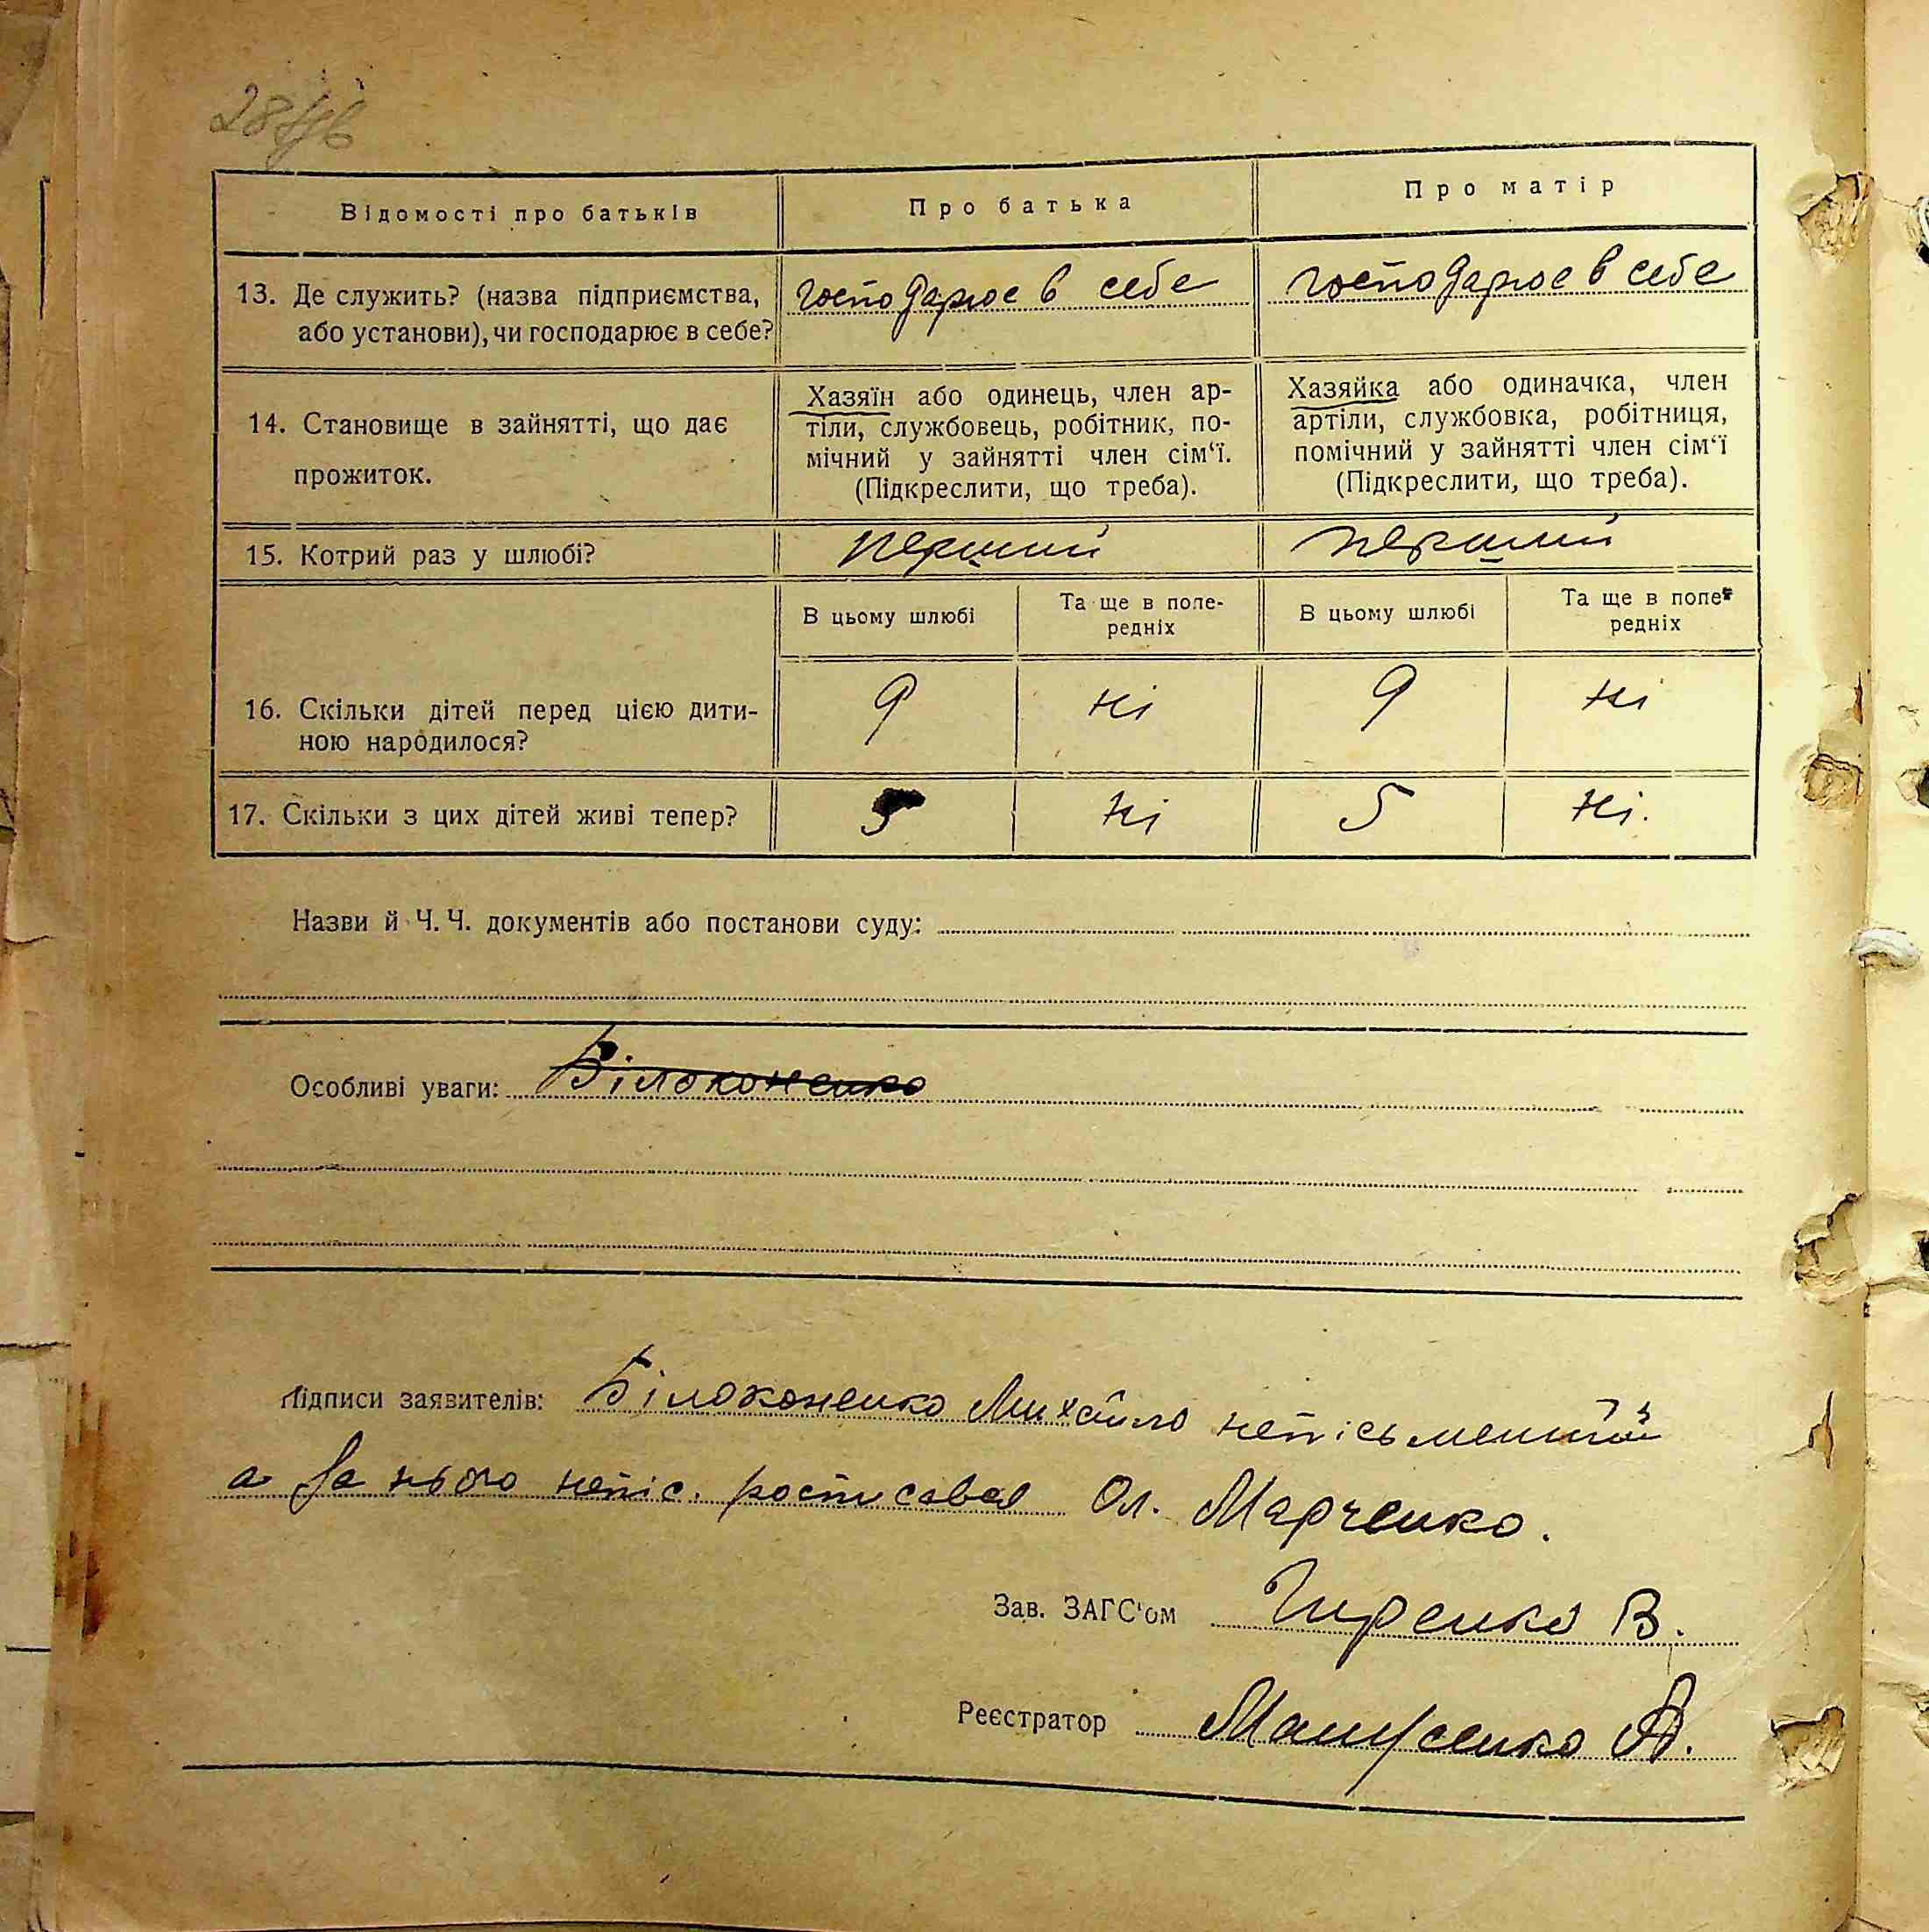 Відомості про батьків
Про батька
Про матір
13. Де служить? (назва підприємства, або установи), чи господарює в себе?
господарює в себе
господарює в себе
14. Становище в зайнятті, що дає прожиток.
Хазяїн або одинець, член ар-
тіли, службовець, робітник, по-
мічний у зайнятті член сім‘ї.
(Підкреслити, що треба).
Хазяйка або одиначка, член
артіли, службовка, робітниця,
помічний у зайнятті член сім‘ї
(Підкреслити, що треба).
15. Котрий раз у шлюбі?
перший
перший
В цьому шлюбі
Та ще в попе-
редніх
В цьому шлюбі
Та ще в попе-
редніх
16. Скільки дітей перед цією дити-
ною народилося?
9
ні
9
ні
17. Скільки з цих дітей живі тепер?
5
ні
5
ні.
Назви й Ч. Ч. документів або постанови суду:
Особливі уваги: Білоконенко
Підписи заявителів: Білоконенко Михайло непісьменний
а за нього непіс. росписався Ол. Марченко.
Зав. ЗАГС'ом Гиренко В.
Реєстратор А.